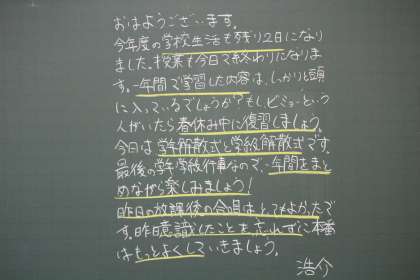 おはようございます。
今年度の学校生活も残り2日になり
ました。授業も今日で終わりになりま
す。一年間で学習した内容は、しっかりと頭
に入っているでしょうか?もし、ビミョーという
人がいたら春休み中に復習しましょう。
今日は学年解散式と学級解散式です。
最後の学年学級行事なので、一年間をまと
めながら楽しみましょう!
昨日の放課後の合唱はとてもよかったで
す。昨日意識したことを忘れずに本番
はもっとよくしていきましょう。
浩介